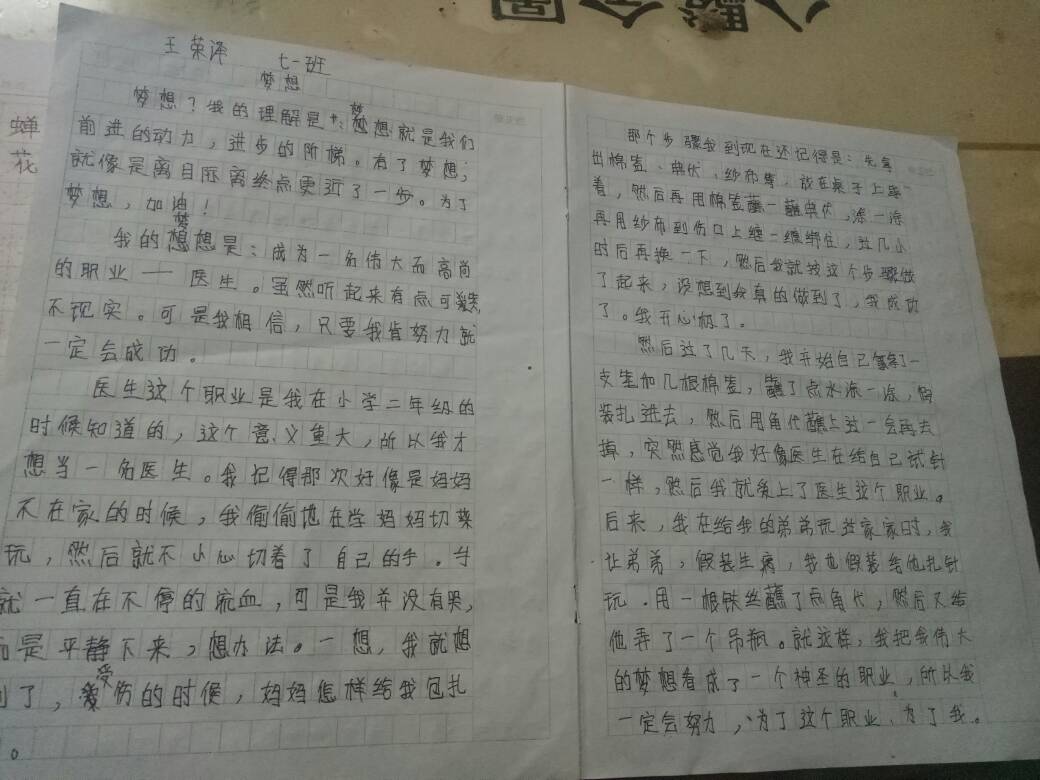 入 骼 合 圖
蝉
花
王荣泽 七一班
梦想
梦想？我的理解是：梦想就是我们
前进的动力，进步的阶梯。有了梦想；
就像是离目际离终点更近了一步。为了
梦想，加油！
我的梦想是：成为一名伟大而高尚
的职业——医生。虽然听起来有点可笑
不现实。可是我相信，只要我肯努力就
一定会成功。
医生这个职业是我在小学二年级的
时候知道的，这个意义重大，所以我才
想当一名医生。我记得那次好像是妈妈
不在家的时候，我偷偷地在学妈妈切菜
玩，然后就不小心切着了自己的手。手
就一直在不停的流血，可是我并没有哭，
而是平静下来，想办法。一想，我就想
到了，受伤的时候，妈妈怎样给我包扎
。
那个步骤我到现在还记得是：先拿
出棉签、典伏，纱布等，放在桌子上
着，然后再用棉签蘸一蘸典伏，涂一涂
再用纱布到伤口上缠一缠绑住，过几小
时后再换一下，然后我就按这个步骤做
了起来，没想到我真的做到了，我成功
了。我开心极了。
然后过了几天，我开始自己拿了一
支笔和几根棉签，蘸了点水涂一涂，假
装扎进去，然后用角代蘸上过一会再去
掉，突然感觉我好像医生在给自己试针
一样，然后我就爱上了医生这个职业。
后来，我在给我的弟弟玩过家家时，我
让弟弟，假装生病，我也假装给他扎针
玩．用一根铁丝蘸了点角代，然后又给
他弄了一个吊瓶。就这样，我把我伟大
的梦想看成了一个神圣的职业，所以我
一定会努力，为了这个职业、为了我。